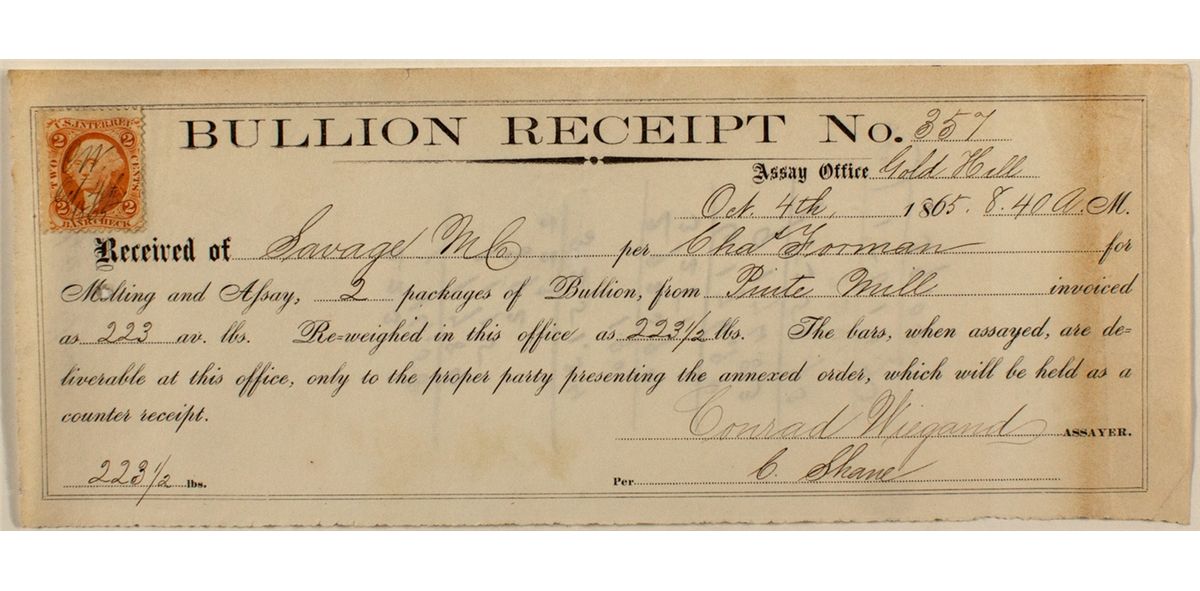 U.S. INTER. REV.
2 2
TWO CENTS
2 2
BANK CHECK
BULLION RECEIPT No. 357
Assay Office Gold Hill
Oct. 4th, 1865. 8.40 A. M.
Received of Savage M C per Chas Forman for
Melting and Aſsay, 2 packages of Bullion, from Piute Mill invoiced
as 223 av. lbs. Re-weighed in this office as 223 1/2 lbs. The bars, when assayed, are de=
liverable at this office, only to the proper party presenting the annexed order, which will be held as a
counter receipt.
Conrad Wiegand ASSAYER.
223 1/2 lbs. Per C. Shane